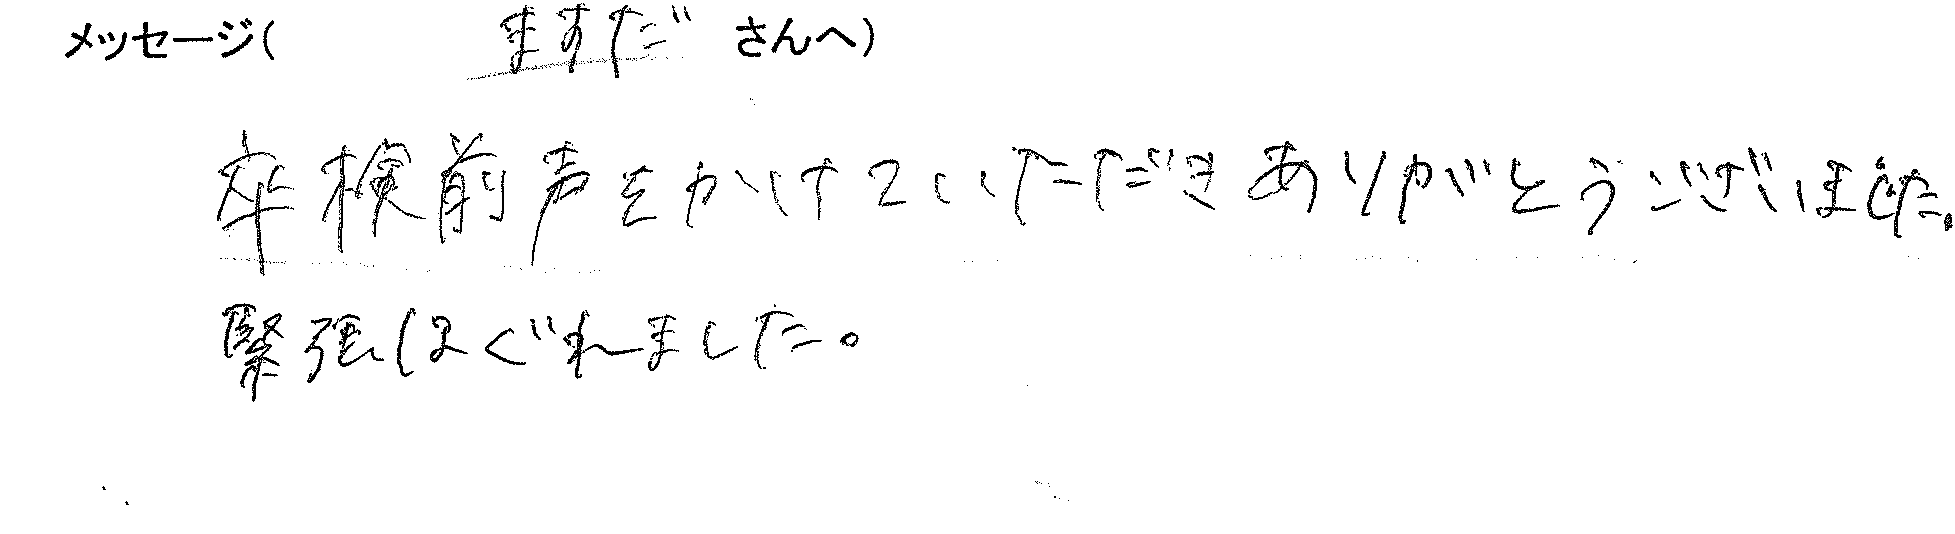 メッセージ( ますだ さんへ)
卒検前声をかけていただきありがとうございました。
緊張ほぐれました。